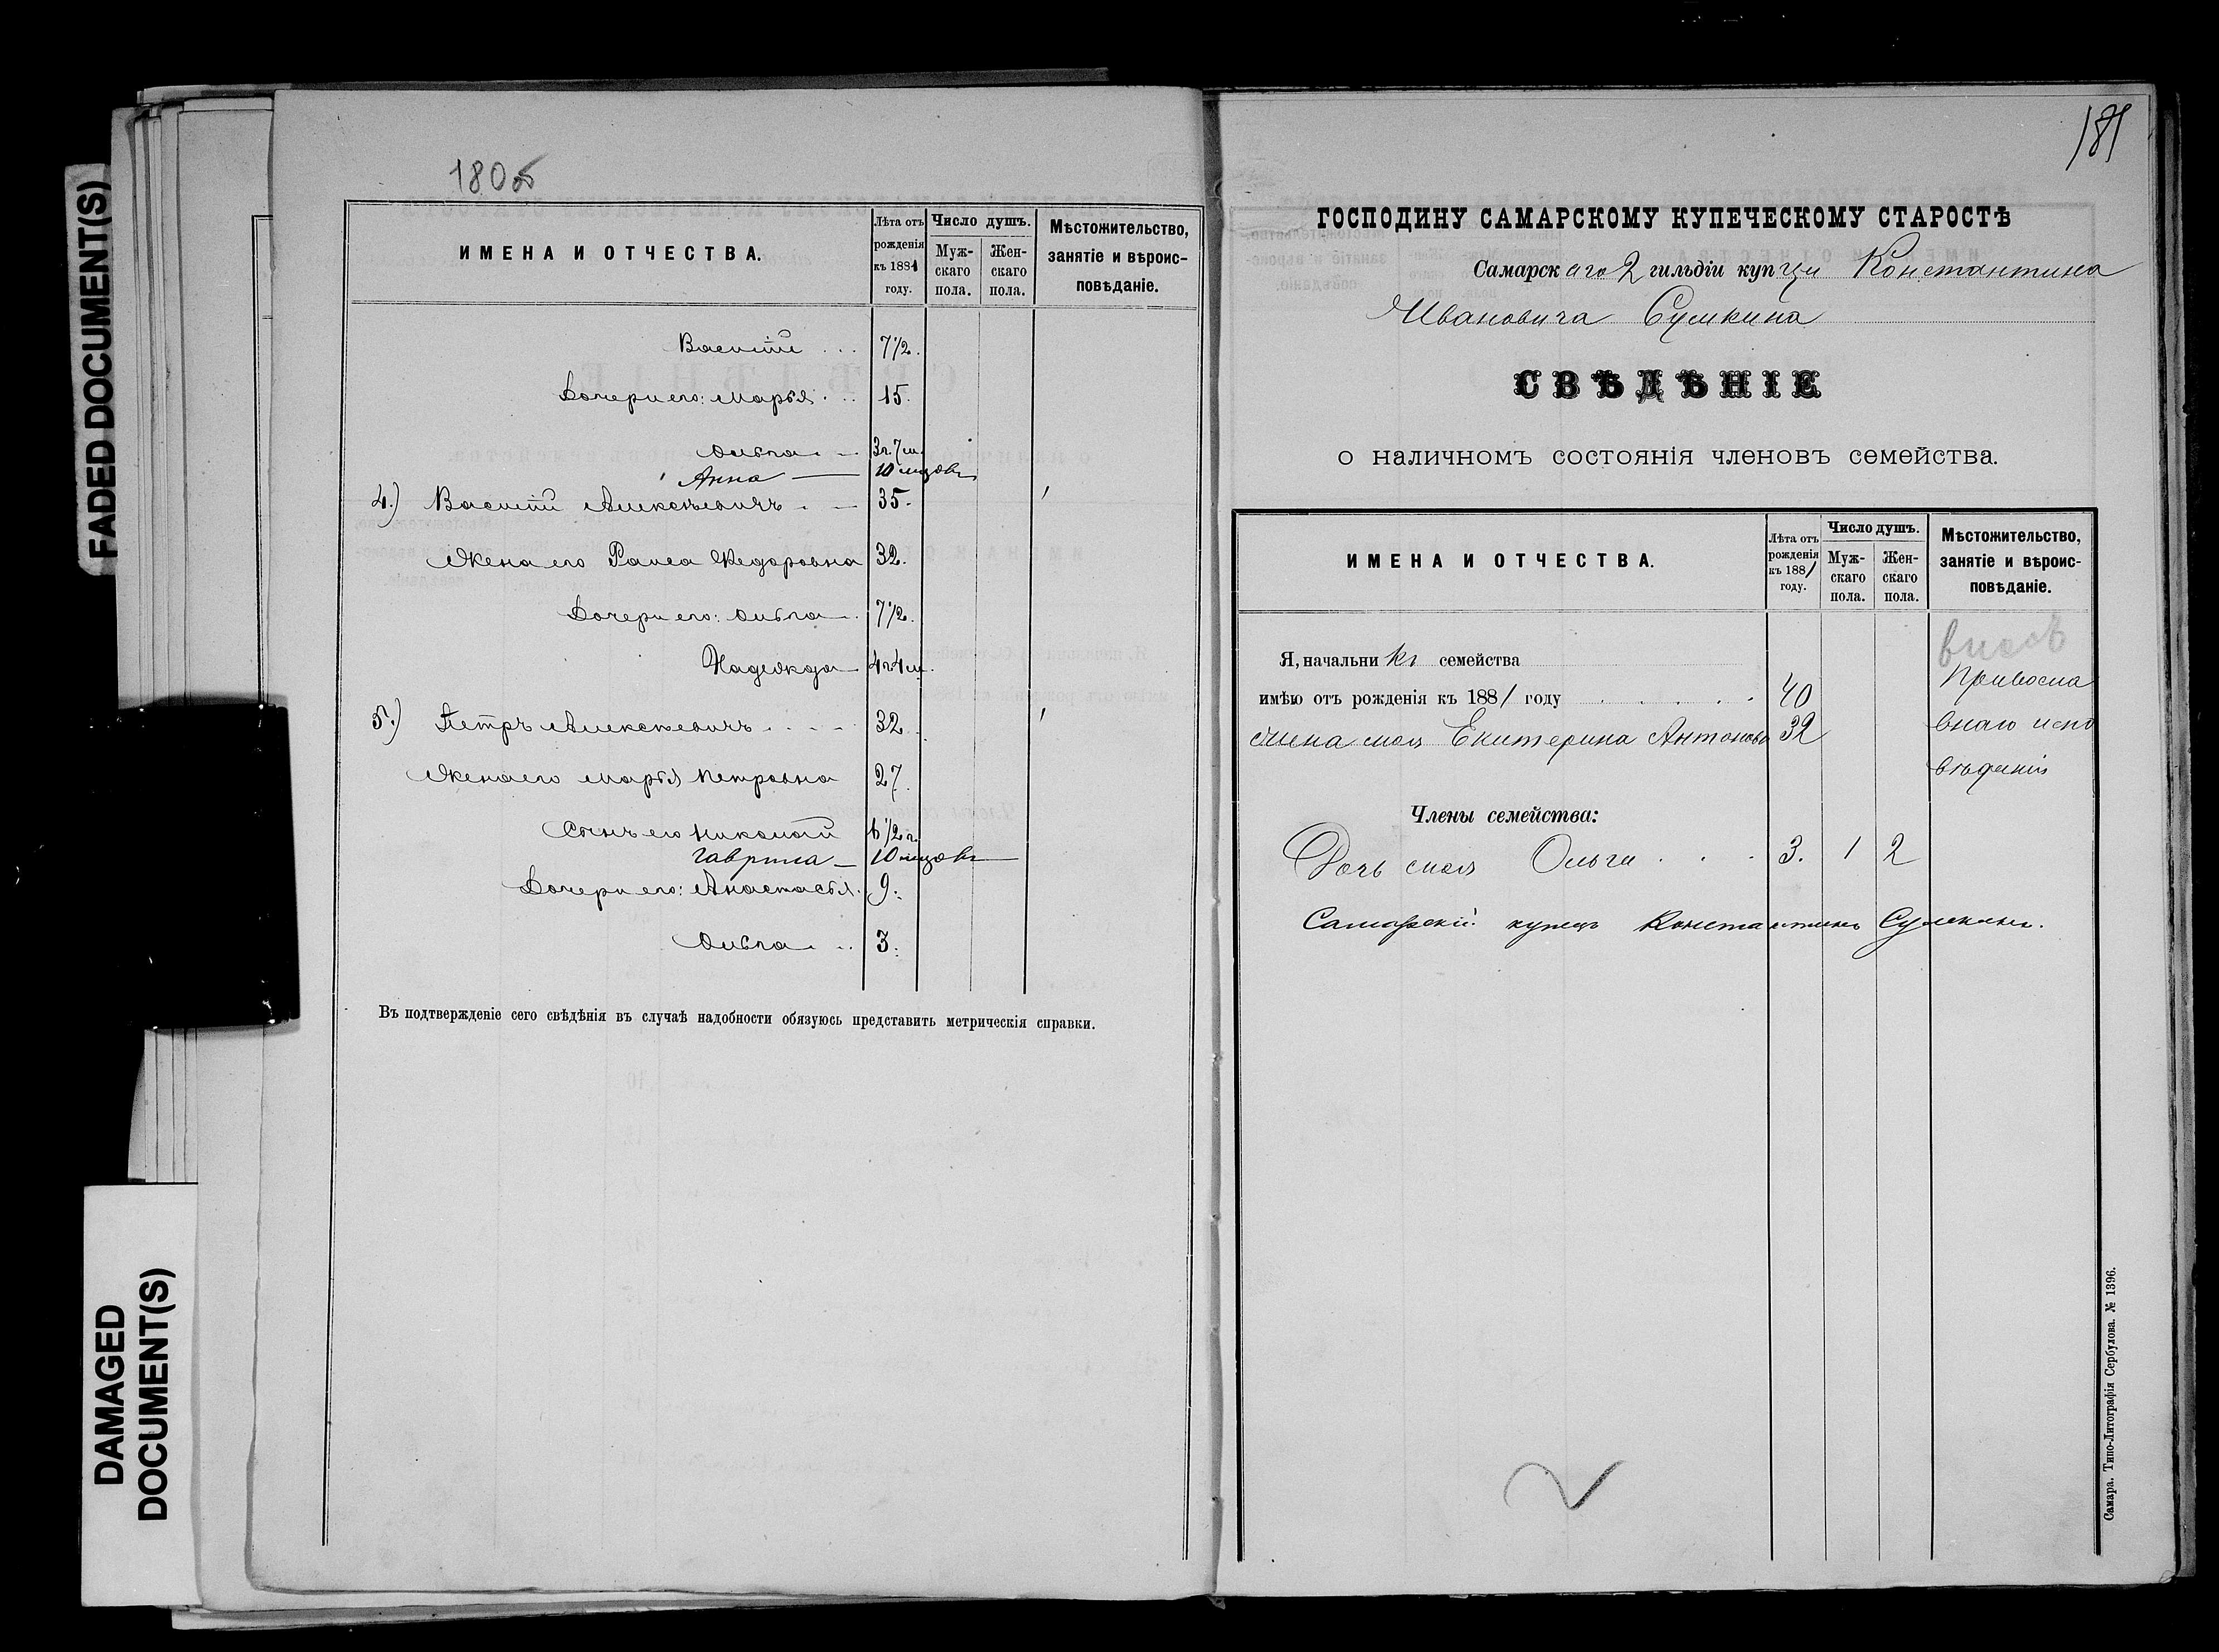 FADED DOCUMENT(S)
DAMAGED
DOCUMENT(S)
180об
ИМЕНА И ОТЧЕСТВА.
Лѣта отъ рожденія къ 1881 году.
Число душъ.
Мужскаго пола.
Женскаго пола.
Мѣстожительство, занятіе и вѣроисповѣданіе.
Василій 7 1/2.
Дочери его: Марья 15.
Ольга 3 г. 7 м.
Анна 10 мѣсяцовъ
4.) Василій Алексѣевичъ 35.
Жена его Раиса Ѳедоровна 32.
Дочери его: Ольга 7 1/2.
Надежда 4 г 4 м.
5.) Петръ Алексѣевичъ 32.
Жена его Марья Петровна 27.
Сынъ его Николай 6 1/2 г.
Гаврила 10
Дочери его: Анастасья 9.
Ольга 3.
Въ подтвержденіе сего свѣдѣнія въ случаѣ надобности обязуюсь представить метрическія справки.
181
ГОСПОДИНУ САМАРСКОМУ КУПЕЧЕСКОМУ СТАРОСТѢ
Самарскаго 2 гильдіи купца Константина
Ивановича Сумкина
СВѢДѢНІЕ
о наличномъ состоянія членовъ семейства.
ИМЕНА И ОТЧЕСТВА.
Лѣта отъ рожденія къ 1881 году.
Число душъ.
Мужскаго пола.
Женскаго пола.
Мѣстожительство, занятіе и вѣроисповѣданіе.
Я, начальникъ семейства
имѣю отъ рожденія къ 1881 году 40
Православнаго исповѣданія
жена моя Екатерина Антоновна 32
Члены семейства:
Дочь моя Ольга 3. 1 2
Самарскій купецъ Константинъ Сумкинъ.
Самара. Типо-Литографія Сербулова. № 1396.